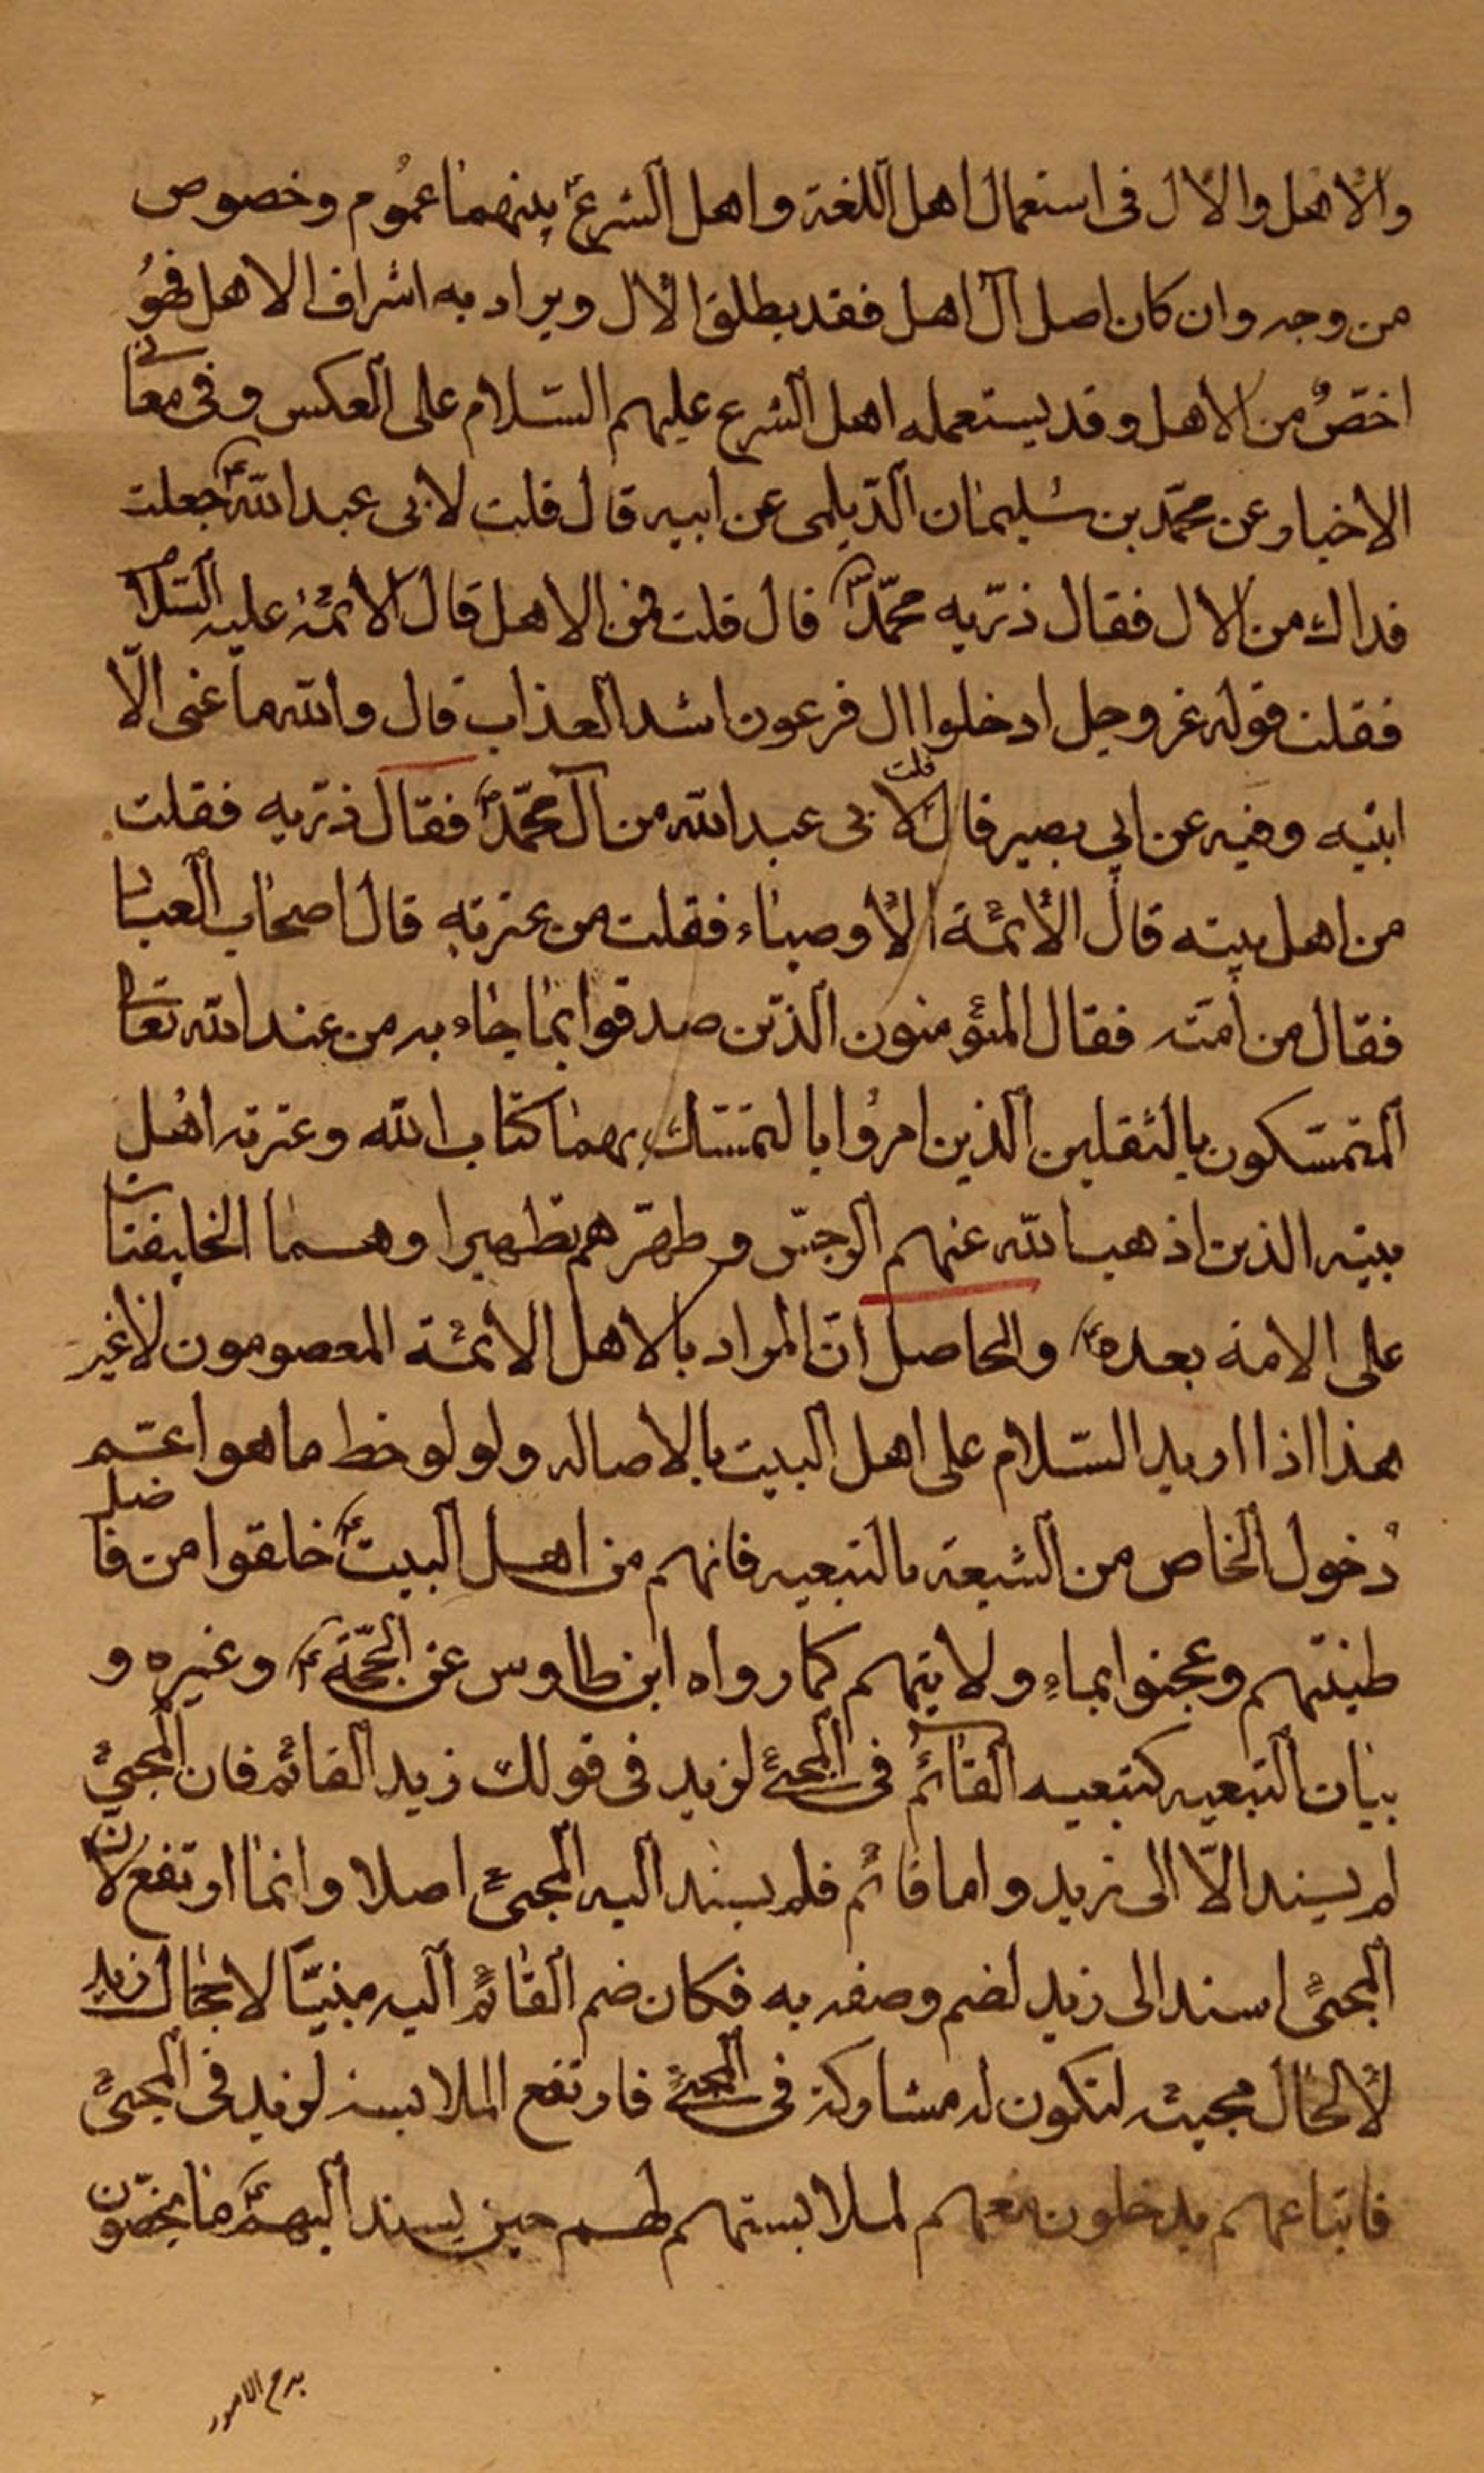 والاهل والال فى استعمال اهل اللغة واهل الشرع بينهما عموم وخصوص
من وجه وان كان اصل آل اهل فقد يطلق الال ويراد به اشراف الاهل فهو
اخصّ من الاهل وقد يستعمله اهل الشرع عليهم السّلام على العكس وفى معانى
الاخبار عن محمّد بن سليمان الدّيلمى عن ابيه قال قلت لابى عبد الله ع جعلت
فداك من الال فقال ذرّيه محمّد ص قال قلت فمن الاهل قال الائمّه عليه السّلام
فقلت قوله عز وجل ادخلوا ال فرعون اشد العذاب قال والله ما عنى الّا
ابنيه وفيه عن ابي بصير قال قلت لابى عبد الله من آل محمّد ص فقال ذرّيه فقلت
من اهل بيته قال الأئمّة الأوصياء فقلت من عترته قال اصحاب العبا
فقال من امّته فقال المؤمنون الّذين صدقوا بما جاء به من عند الله تعالى
المتمسّكون بالثقلين الّذين امروا بالتمسّك بهما كتاب الله وعترته اهل
بيته الذين اذهب الله عنهم الرجس وطهّرهم تطهيرا وهما الخليفتان
على الامة بعده ص والحاصل انّ المراد بالاهل الائمّة المعصومون لا غير
هذا اذا اريد السّلام على اهل البيت بالاصاله ولو لوحظ ما هو اعمّ
دخول الخاص من الشيعة بالتبعيه فانهم من اهل البيت ع خلقوا من فاضل
طينتهم وعجنوا بماء ولايتهم كما رواه ابن طاوس عن الحجّة ع وغيره و
بيان التبعيه كتبعيه القائم فى المجئ لزيد فى قولك زيد القائم فان المجئ
لم يسند الّا الى زيد واما قائم فلم يسند اليه المجئ اصلا وانما ارتفع لان
المجئ اسند الى زيد لضم وصفه به فكان ضم القائم اليه مبنيّا لا بحال زيد
لا لحال مجيئه لتكون له مشاركة فى المجئ فارتفع الملابسة لزيد فى المجئ
فاتباعهم يدخلون معهم لملابستهم لهم حين يسند اليهم ع ما يخصّون